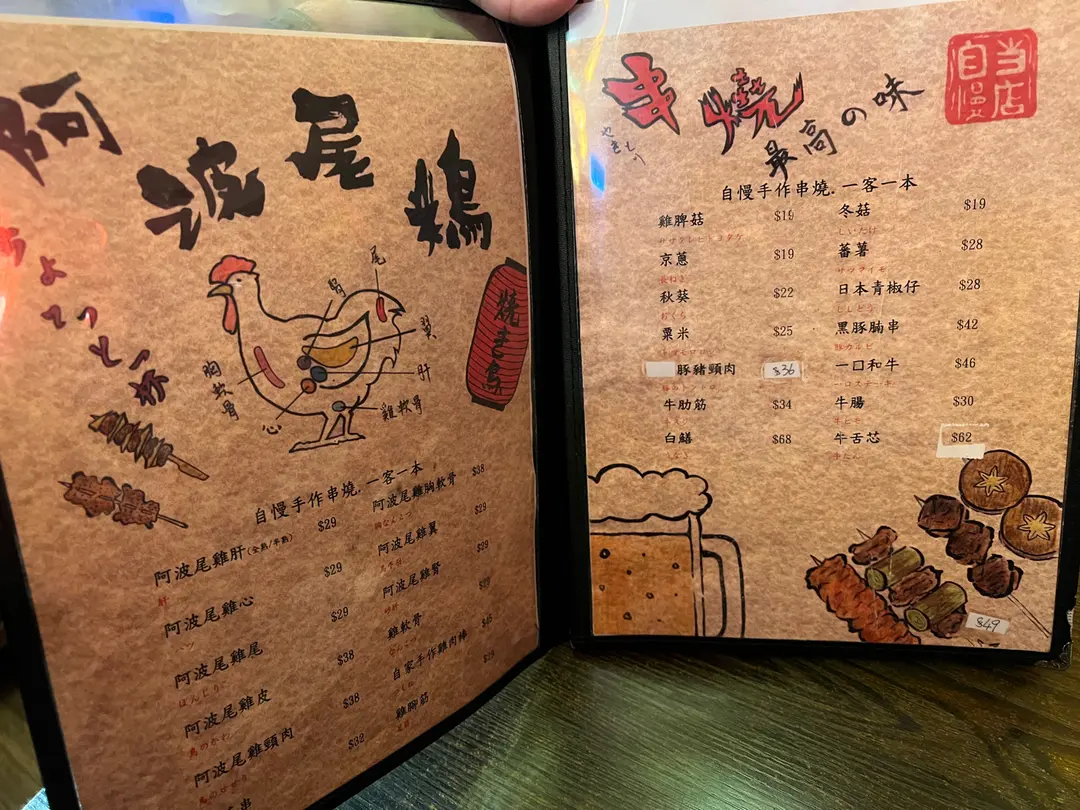 阿波尾鶏
ちょっと一杯
胸軟骨
心
腎
尾
翼
肝
雞軟骨
焼き鳥
自慢手作串燒.一客一本
阿波尾雞肝(全熟/半熟) $29
肝
阿波尾雞心 $29
阿波尾雞尾 $29
ぼんじり
阿波尾雞皮 $38
鳥のかわ
阿波尾雞頸肉 $38
$32
阿波尾雞胸軟骨 $38
胸なんこつ
阿波尾雞翼 $29
阿波尾雞腎 $29
雞軟骨 $29
自家手作雞肉棒
つくね
雞腳筋 $29
串燒
やきとり
最高の味
当店自慢
自慢手作串燒.一客一本
雞脾菇 $19
京蔥 $19
長ねぎ
秋葵 $22
粟米 $25
豚豬頸肉 $36
牛肋筋 $34
白鱔 $68
冬菇 $19
しいたけ
蕃薯 $28
サツマイモ
日本青椒仔 $28
ししとう
黑豚腩串 $42
豚カルビ
一口和牛 $46
牛腸 $30
牛舌芯 $62
$49